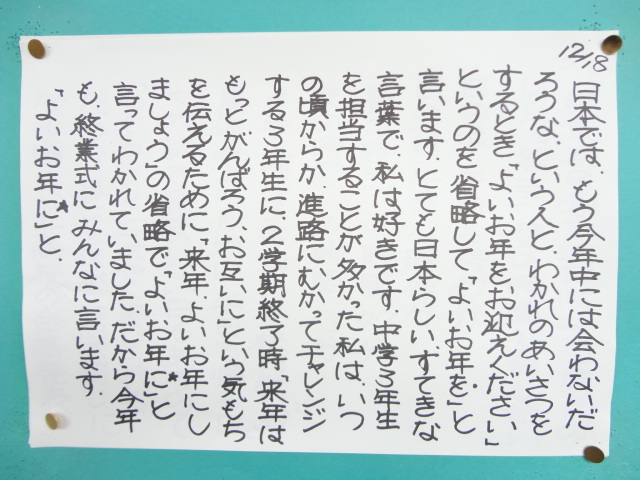 12/18
日本では、もう今年中には会わないだ
ろうな、という人と、わかれのあいさつを
するとき「よいお年をお迎えください」
というのを 省略して「よいお年を」と
言います。とても日本らしい、すてきな
言葉で、私は好きです。中学3年生
を担当することが多かった私は、いつ
の頃からか、進路にむかってチャレンジ
する3年生に、2学期終了時「来年は
もっとがんばろう、お互いに」という気もち
を伝えるために「来年、よいお年にし
ましょう」の省略で「よいお年に」と
言ってわかれていました。だから今年
も、終業式に みんなに言います。
「よいお年に」と。